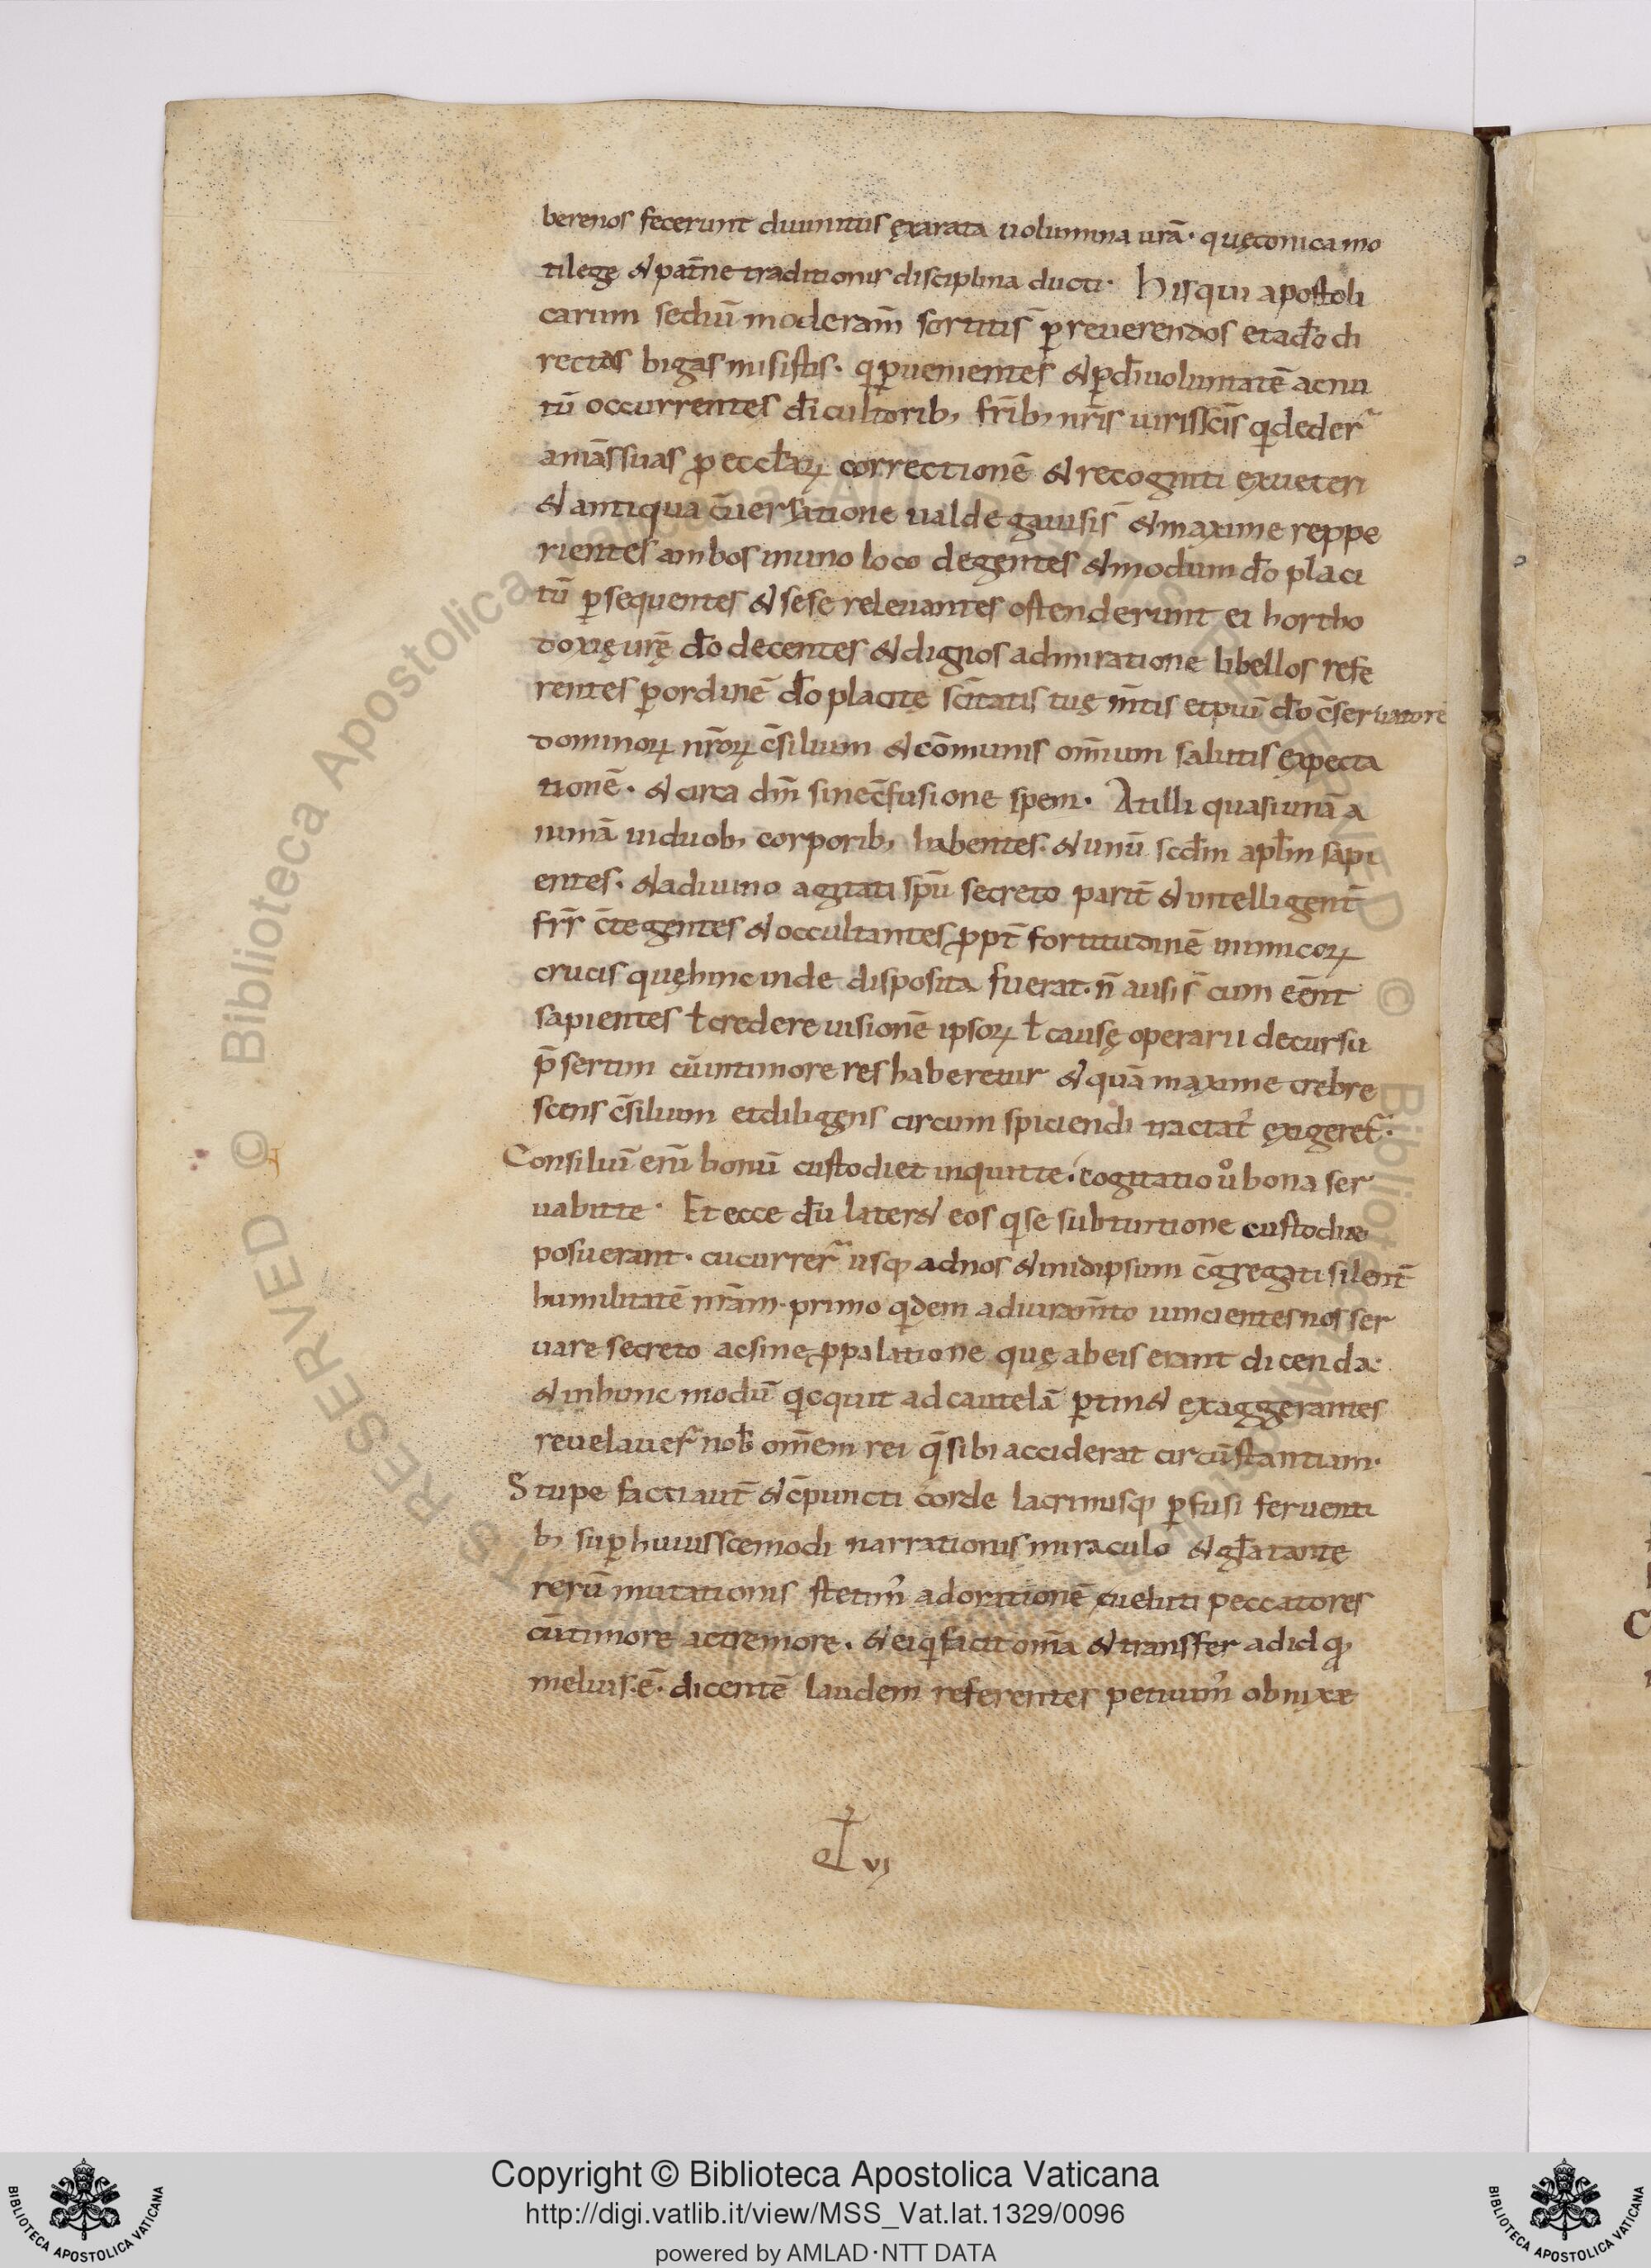 berenos fecerunt diuinitus ęxarata uolumina ur̄a · quęconicamo
tilegę & pat̄ne traditionis disciplina ducti · Hisqui apostoli
carum sediū moderam̄ sortitis̄ p̱reuerendos etado̅ di
rectos bigas misistis · qip̱uenientes & p̱di̅uoluntatē acnu
tū occurrentes di̅cultorib; fr̄ib; nr̄is uirissc̄is qideder̄
aniās̄suas ꝓeccl̄arꝝ correctionē & recogniti exueteri
& antiqua c̄uersatione ualde gauisis̄ & maxime reppe
rientes ambos inuno loco degentes & modum do̅ placi
tū p̱sequentes & sese releuantes ostenderunt ei hortho
doxię ur̄ę do̅ decentes & dignos admiratione libellos refe
rentes p̱ordinē do̅ placitę sc̄itatis tuę m̄tis etpiū do̅ c̄seruatore
dominoꝝ nr̄oꝝ c̄silium & com̄unis om̄ium salutis expecta
tionē · & circa dm̄ sinec̄fusione spem · Atilli quasiunā a
nimā induob; corporib; habentes · & unū scd̄m apl̄m sapi
entes · & adiuuino agitati spū secreto parit̄ & intelligent̄
frr̄ c̄tegentes & occultantes ꝓpt̄ fortitudinē inimicoꝝ
crucis quęhincinde disposita fuerat · n̄ ausis̄ cum eēnt
sapientes ł credere uisionē ipsoꝝ ł causę operarii decursu
p̄sertim cūintimore res haberetur & quā maxime crebre
scens c̄silium etdiligens circum spiciendi tractat᾽ ęxigeret᾽ ·
Consiliū eni̅ bonū custodiet inquitte · cogitatio ůo bona ser
uabitte · Et ecce dū later& eos qise subturtione custodie
posuerant · cucurrer̄ usqꝫ adnos & inidipsum c̄gregati silent̄
humilitatē nr̄am · primo qidem adiuram̄to uincientes nos ser
uare secreto acsine ꝓpalatione quę abeis erant dicenda ·
& inhunc modū qicquit ad cautelā p̱tin& exaggerantes
reuelauer̄ nob̄ om̄em rei q̄sibi acciderat circūstantiam ·
Stupe facti aut̄ & c̄puncti corde lacrimisqꝫ p̱fusi feruenti
b; sup̱huiusscemodi narrationis miraculo & gl̄atante
rerū mutationis stetim᾽ adorationē cueluti peccatores
cūtimore actremore · & eiqifacit om̄a & transfer adid qꝫ
melius · ē · dicentē laudem referentes petiuim᾽ obnixe